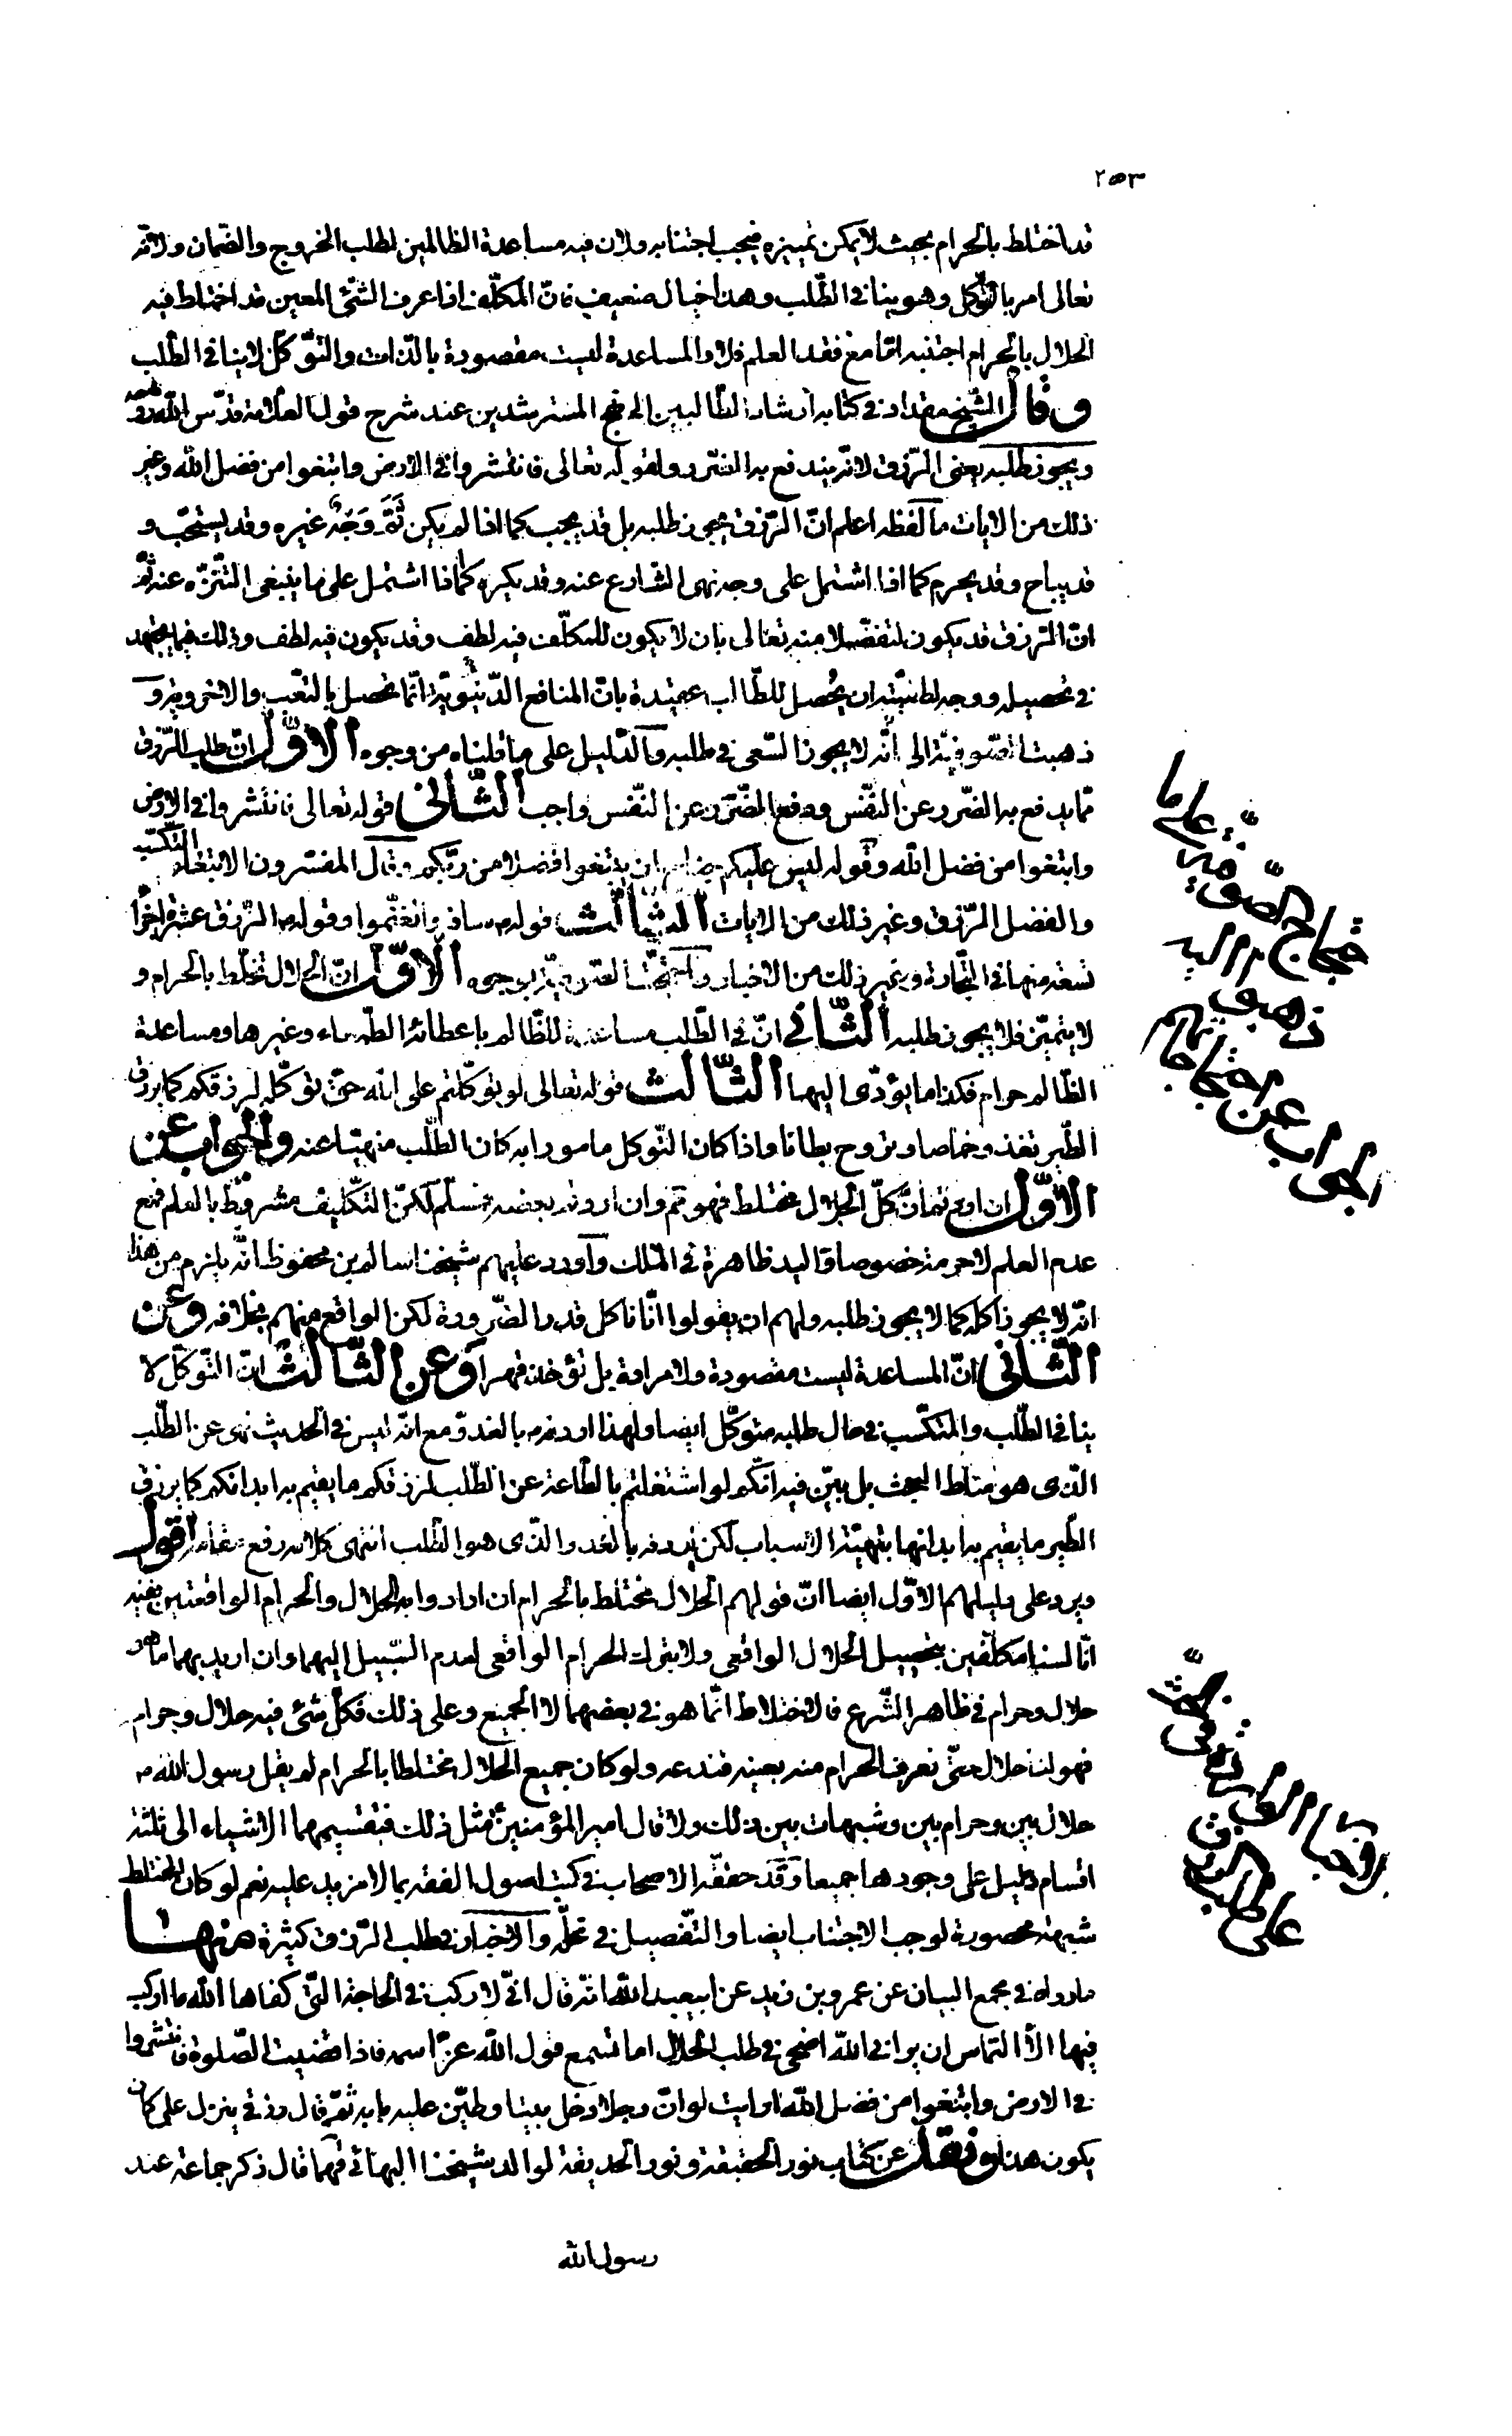 ٢٥٣
قد اختلط بالحرام بحيث لا يمكن تمييزه فيجب اجتنابه ولان فيه مساعدة الظالمين لطلب الخروج والضمان ولانه
تعالى امر بالتوكل وهو ينافى الطّلب وهذا خيال ضعيف فانّ المكلّف اذا عرف الشئ المعين قد اختلط فيه
الحلال بالحرام اجتنبه امّا مع فقد العلم فلا والمساعدة ليست مقصودة بالذات والتوّكل لا ينافى الطلب
وقال الشّيخ مقداد فى كتابه ارشاد الطّالبين الى نهج المسترشدين عند شرح قول العلامة قدّس الله روحه
ويجوز طلبه يعنى الرّزق لانّه يندفع به الضّرر ولقوله تعالى فانتشروا فى الارض وابتغوا من فضل الله وغير
ذلك من الايات ما لفظه اعلم انّ الرّزق يجوز طلبه بل قد يجب كما اذا لم يكن ثَمَّ وَجْهٌ غيره وقد يستحبّ و
قد يباح وقد يحرم كما اذا اشتمل على وجه نهى الشّارع عنه وقد يكره كما اذا اشتمل على ما ينبغى التّنزّه عنه ثمّ
انّ الرّزق قد يكون تفضّلا منه تعالى بان لا يكون للمكلّف فيه لطف وقد يكون فيه لطف وذلك فيما يجتهد
فى تحصيله ووجه لطفيّته ان يحُصل للطّالب عقيدة بانّ المنافع الدّنيويّة انّما تحصل بالتعّب والاخرويّة و
ذهبت الصّوفيّة الى انّه لا يجوز السّعى فى طلبه والدّليل على ما قلناه من وجوه الاوّل انّ طلب الرّزق
ممّا يدفع به الضّرر عن النّفس ودفع الضّرر عن النّفس واجب الثّانى قوله تعالى فانتشروا فى الارض
وابتغوا من فضل الله وقوله ليس عليكم جناح ان تبتغوا فضلا من ربّكم وقال المفسّرون الابتغاء التّكسّب
والفضل الرّزق وغير ذلك من الايات الثّالث قوله ص سافروا تغنّموا وقوله ص الرّزق عشرة اجزاء
تسعة منها فى التّجارة وغير ذلك من الاخبار واحتجّت الصّوفيّة بوجوه الاوّل انّ الحلال مختلط بالحرام و
لا يتميّز فلا يجوز طلبه الثّانى انّ فى الطّلب مساعدة للظّالم باعطائه الطّمغاء وغيرها ومساعدة
الظّالم حرام فكذا ما يؤدّى اليها الثّالث قوله تعالى لو توكّلتم على الله حقّ توكّله لرزقكم كما يرزق
الطّير تغدو خماصا وتروح بطانا واذا كان التّوكل مامورا به كان الطّلب منهيّا عنه والجواب عن
الاوّل ان ادعيتم انّ كلّ الحلال مختلط فهو مم وان اردتم بعضه فمسلّم لكنّ التكّليف مشروط بالعلم فمع
عدم العلم لا حرمة خصوصا والید ظاهرة فى الملك واورد عليهم شيخنا سالم بن محفوظ انّه يلزم من هذا
انّه لا يجوز اكله كما لا يجوز طلبه ولهم ان يقولوا انّا ناكل قدر الضّرورة لكن الواقع منهم بخلافه وعن
الثّانى انّ المساعدة ليست مقصودة ولا مرادة بل تؤخذ قهرا وعن الثّالث انّ التّوكّل لا
ينافى الطّلب والمتكّسب فى حال طلبه متوكّل ايضا ولهذا اردفه بالغدوّ مع انّه ليس فى الحديث نهى عن الطّلب
الّذى هو مناط البحث بل بيّن فيه انّكم لو اشتغلتم بالطّاعة عن الطّلب لرزقكم ما يقيم به ابدانكم كما يرزق
الطّير ما يقيم به ابدانها بتهيّئة الاسباب لكن اردفه بالغدو الّذى هو الطّلب انتهى كلامه رفع مقامه اقول
ويرد على دليلهم الاوّل ايضا انّ قولهم الحلال مختلط بالحرام ان ارادوا به الحلال والحرام الواقعيّين ففيه
انّا لسنا مكلّفين بتحصيل الحلال الواقعى ولا بترك الحرام الواقعى لعدم السّبيل اليهما وان اريد بهما ما هو
حلال وحرام فى ظاهر الشّرع فالاختلاط انّما هو فى بعضهما لا الجميع وعلى ذلك فكلّ شئ فيه حلال وحرام
فهو لك حلال حتّى تعرف الحرام منه بعينه فتدعه ولو كان جميع الحلال مختلطا بالحرام لم يقل رسول الله ص
حلال بين وحرام بين وشبهات بين ذلك ولا قال امير المؤمنينؑ مثل ذلك فتقسيمهما الاشياء الى ثلثة
اقسام دليل على وجودها جميعا وقد حقّقه الاصحاب فى كتب اصول الفقه بما لا مزيد عليه نعم لو كان المختلط
شبهة محصورة لوجب الاجتناب ايضا والتّفصيل فى محلّه والاخبار فى طلب الرّزق كثيرة منها
ما رواه فى مجمع البيان عن عمرو بن زيد عن ابيعبد الله انّه قال انّى لاركب فى الحاجة الّتى كفاها الله ما اركب
فيها الاّ التماس ان يرانى الله اضحى فى طلب الحلال اما تسمع قول الله عزّ اسمه فاذا قضيت الصّلوة فانتشروا
فى الارض وابتغوا من فضل الله ارايت لو انّ رجلا دخل بيتا وطيّن عليه بابه ثمّ قال رزقى ينزل علىّ كان
يكون هذا ونقل عن كتاب نور الحقيقة ونور الحديقة لوالد شيخنا البهائى فهما قال ذكر جماعة عند
رسول الله
احتجاج الصّوفيّة على ما
ذهبوا اليه
الجواب عن احتجاجاتهم
الاخبار الواردة فى الحثّ
على طلب الرّزق